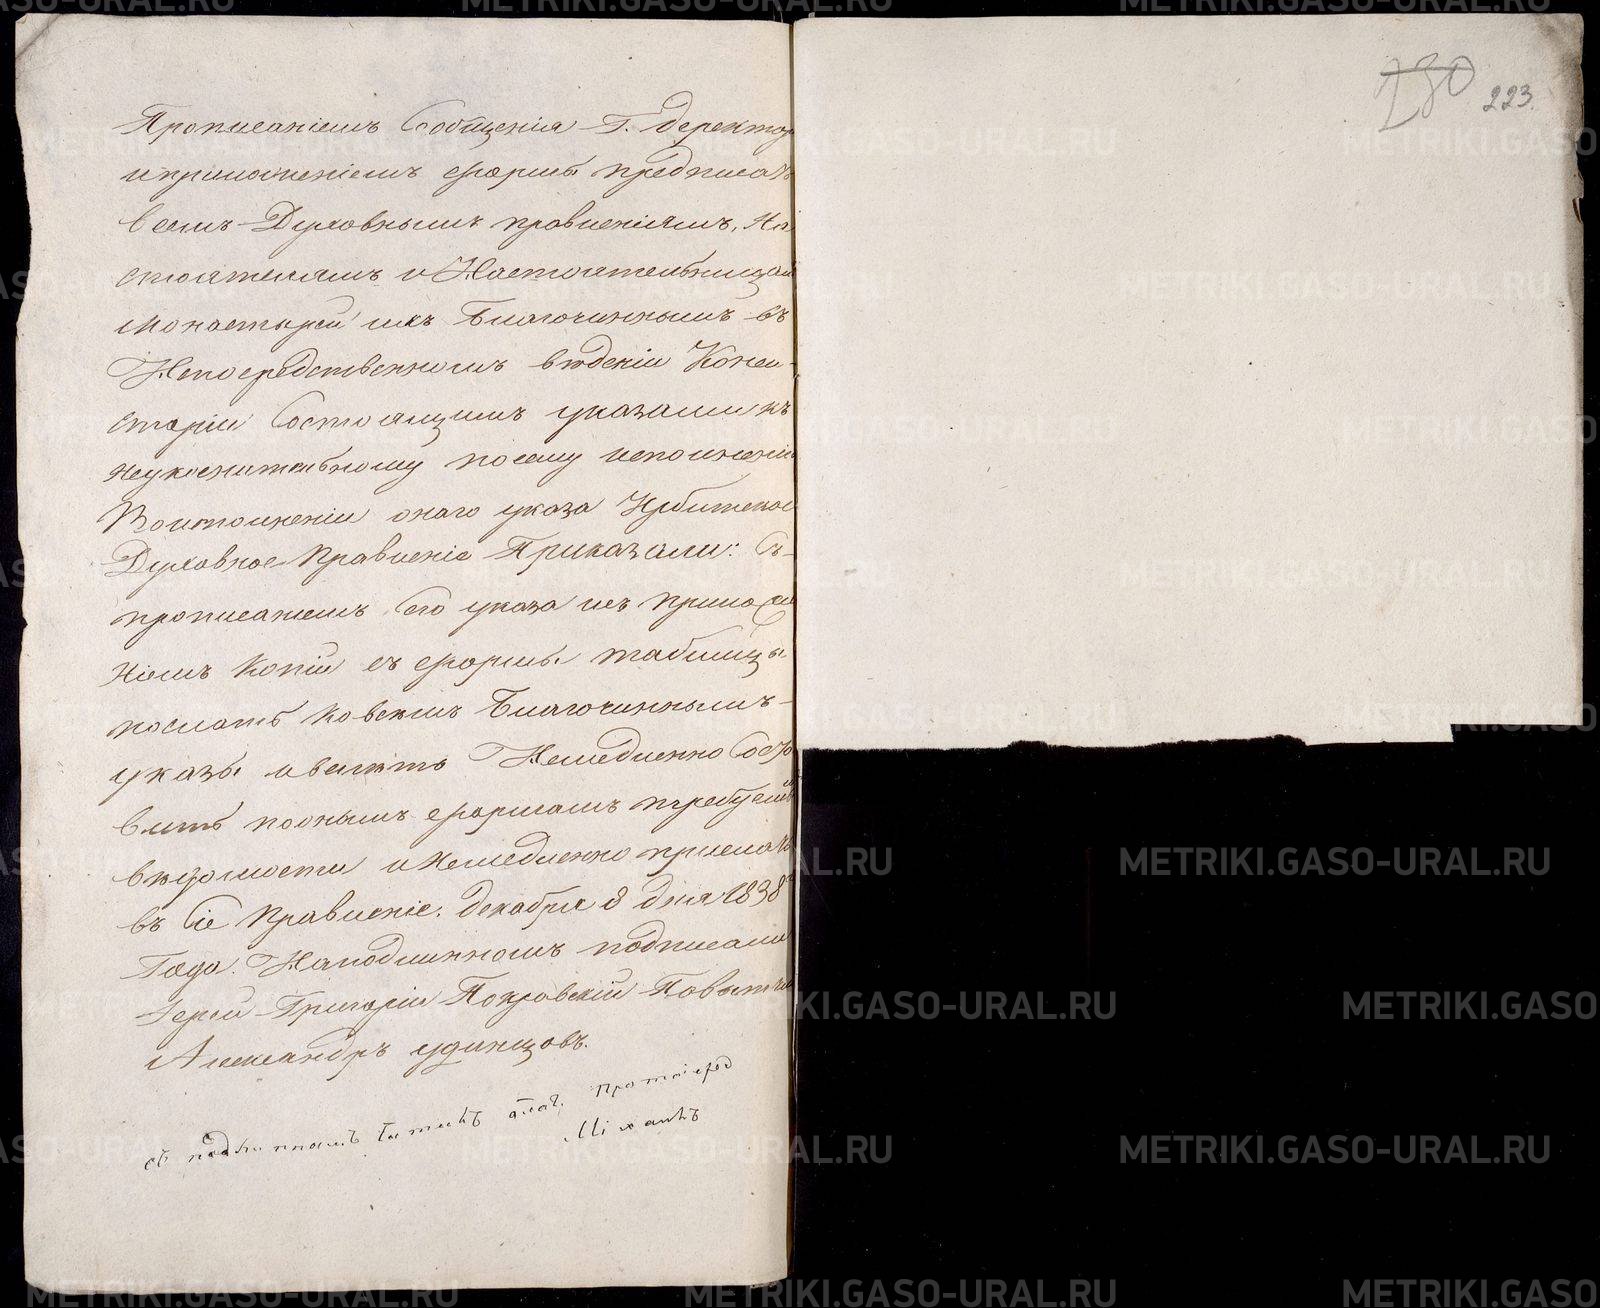 230
223.
Прописаніемъ Сообщенія Г. Деректор
иприложеніемъ формы предписат
Всемъ Духовнымъ правленіямъ, На
стоятелямъ и Настоятельницам
Монастырей ихъ Благочиннымъ въ
Непосредственномъ вѣдѣніи Конси-
сторіи Состоящимъ указами къ
неукоснительному посему исполненію
Воисполненіи онаго указа Ирбитское
Духовное Правленіе Приказали: Съ-
прописаніемъ Сего указа исъ приложе
ніемъ Копіи съ формы таблицы
послать Ковсемъ Благочиннымъ-
указы ивелѣть Немедленно Соста
вить поонымъ формамъ требуемыя
вѣдомости инемедленно прислать
въ Сіе Правленіе. Декабря 8 дня 1838
Года. Наподлинномъ подписали
Іерей Григорій Покровскій Повытчик
Александръ Удинцовъ.
съ подлиннымъ благ. Протоіерей
Міхаилъ
METRIKI.GASO-URAL.RU